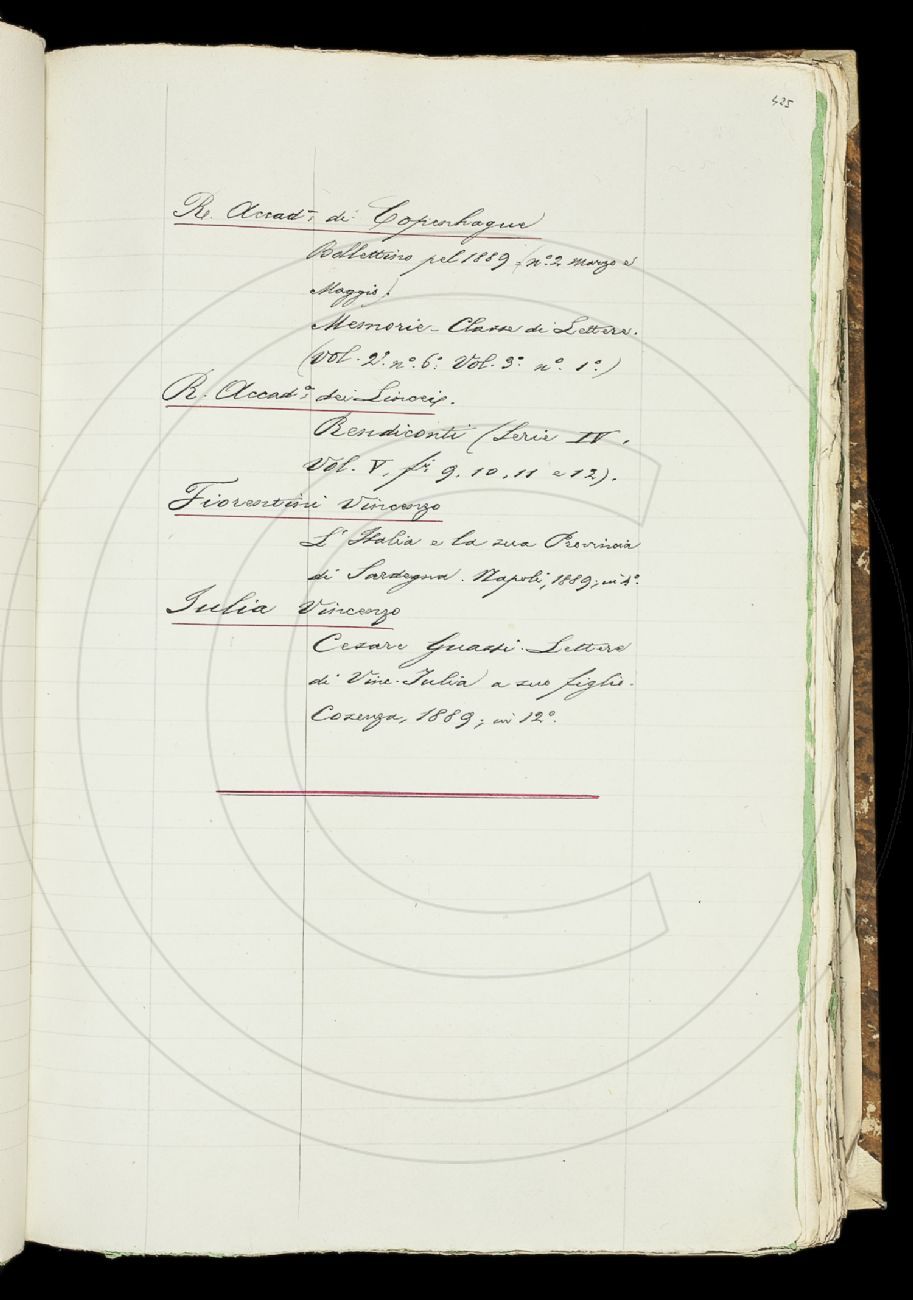 425
R. Accad.ª di Copenhague
Bollettino pel 1889 (nº 2 marzo e
Maggio).
Memorie - Classe di Lettere.
(Vol. 2º nº 6º: Vol. 3º nº 1º)
R. Accad.ª dei Lincei.
Rendiconti (Serie IV,
Vol. V, fi 9, 10, 11 e 12).
Fiorentini Vincenzo
L'Italia e la sua Provincia
di Sardegna. Napoli, 1889; in 4º.
Julia Vincenzo
Cesare Guasti. Lettere
di Vinc. Julia a suo figlio.
Cosenza, 1889; in 12º.